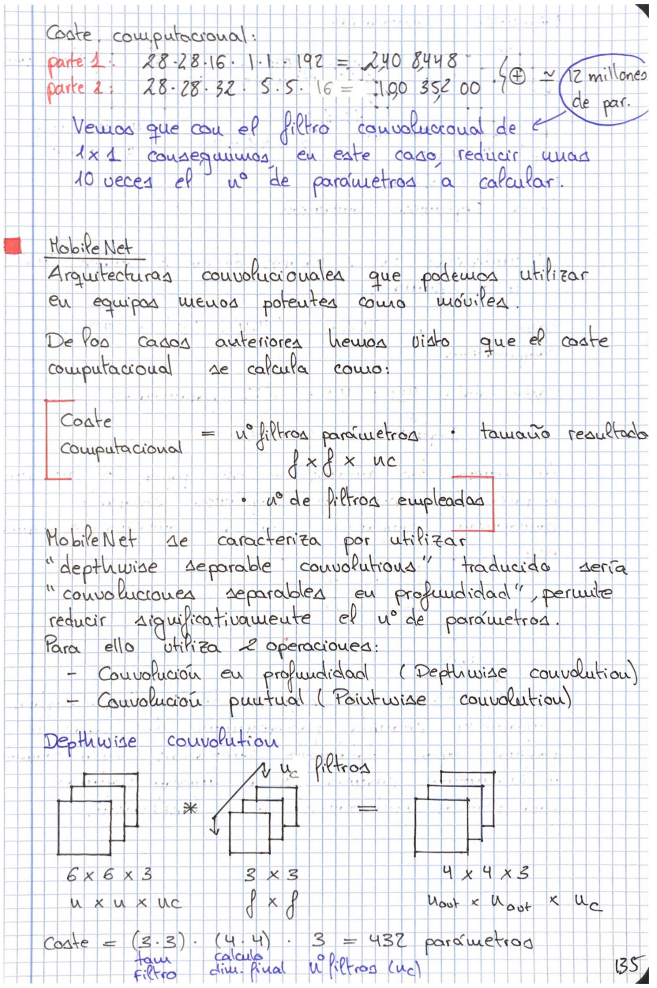 Coste computacional:
parte 1: 28·28·16 · 1·1 · 192 = 240 8448
parte 2: 28·28·32 · 5·5·16 = 100 352 00 ⊕ ≃ 12 millones
de par.
Vemos que con el filtro convolucional de
1x1 conseguimos, en este caso, reducir unas
10 veces el nº de parámetros a calcular.
MobileNet
Arquitecturas convolucionales que podemos utilizar
en equipos menos potentes como móviles.
De los casos anteriores hemos visto que el coste
computacional se calcula como:
Coste
computacional = nº filtros parámetros · tamaño resultado
f x f x nc
· nº de filtros empleados
MobileNet se caracteriza por utilizar
"depthwise separable convolutions" traducido sería
"convoluciones separables en profundidad", permite
reducir significativamente el nº de parámetros.
Para ello utiliza 2 operaciones:
- Convolución en profundidad (Depthwise convolution)
- Convolución puntual (Pointwise convolution)
Depthwise convolution
nc filtros
* =
6 x 6 x 3 3 x 3 4 x 4 x 3
n x n x nc f x f nout x nout x nc
Coste = (3·3) · (4·4) · 3 = 432 parámetros
tam calculo
filtro dim. final nº filtros (nc)
135